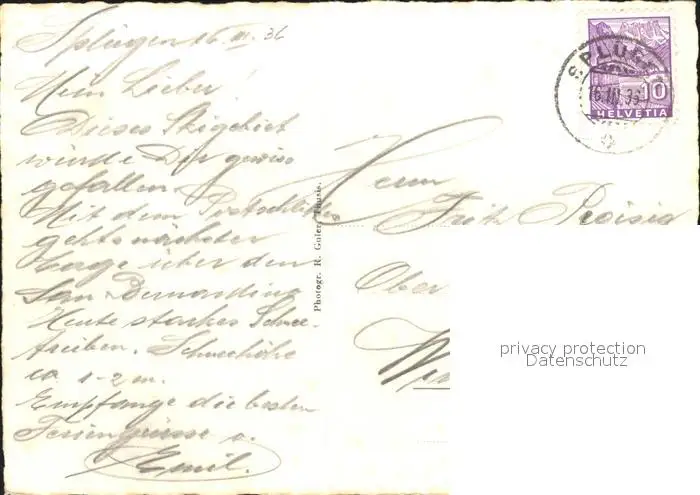 Splügen 16. III. 36
Mein Lieber!
Dieses Skigebiet
würde Dir gewiss
gefallen.
Mit dem
gehts nächster
Tage über den
San Bernardino
Heute starkes Schnee-
treiben. Schneehöhe
ca. 1-2 m.
Empfange die besten
Feriengrüsse v.
Emil.
Photogr. R. Guler, Thusis.
SPLÜGEN
16.III.36
10
HELVETIA
Herrn
Fritz
Ober
privacy protection
Datenschutz